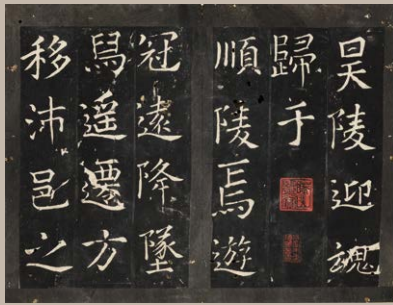 昊陵迎魂
歸于
順陵焉遊
冠遠降墜
舄遥遷方
移沛邑之